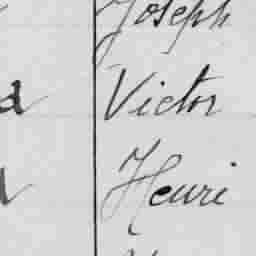 Joseph
d Victor
Henri